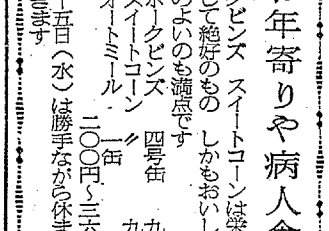 年寄りや病人食
クビンズ スイートコーンは栄
して絶好のもの しかもおいし
のよいのも満点です
ポークビンズ 四号缶 九
スイートコーン 〃 九
オートミール 一缶
二〇〇円〜三六
十五日（水）は勝手ながら休ま
きます